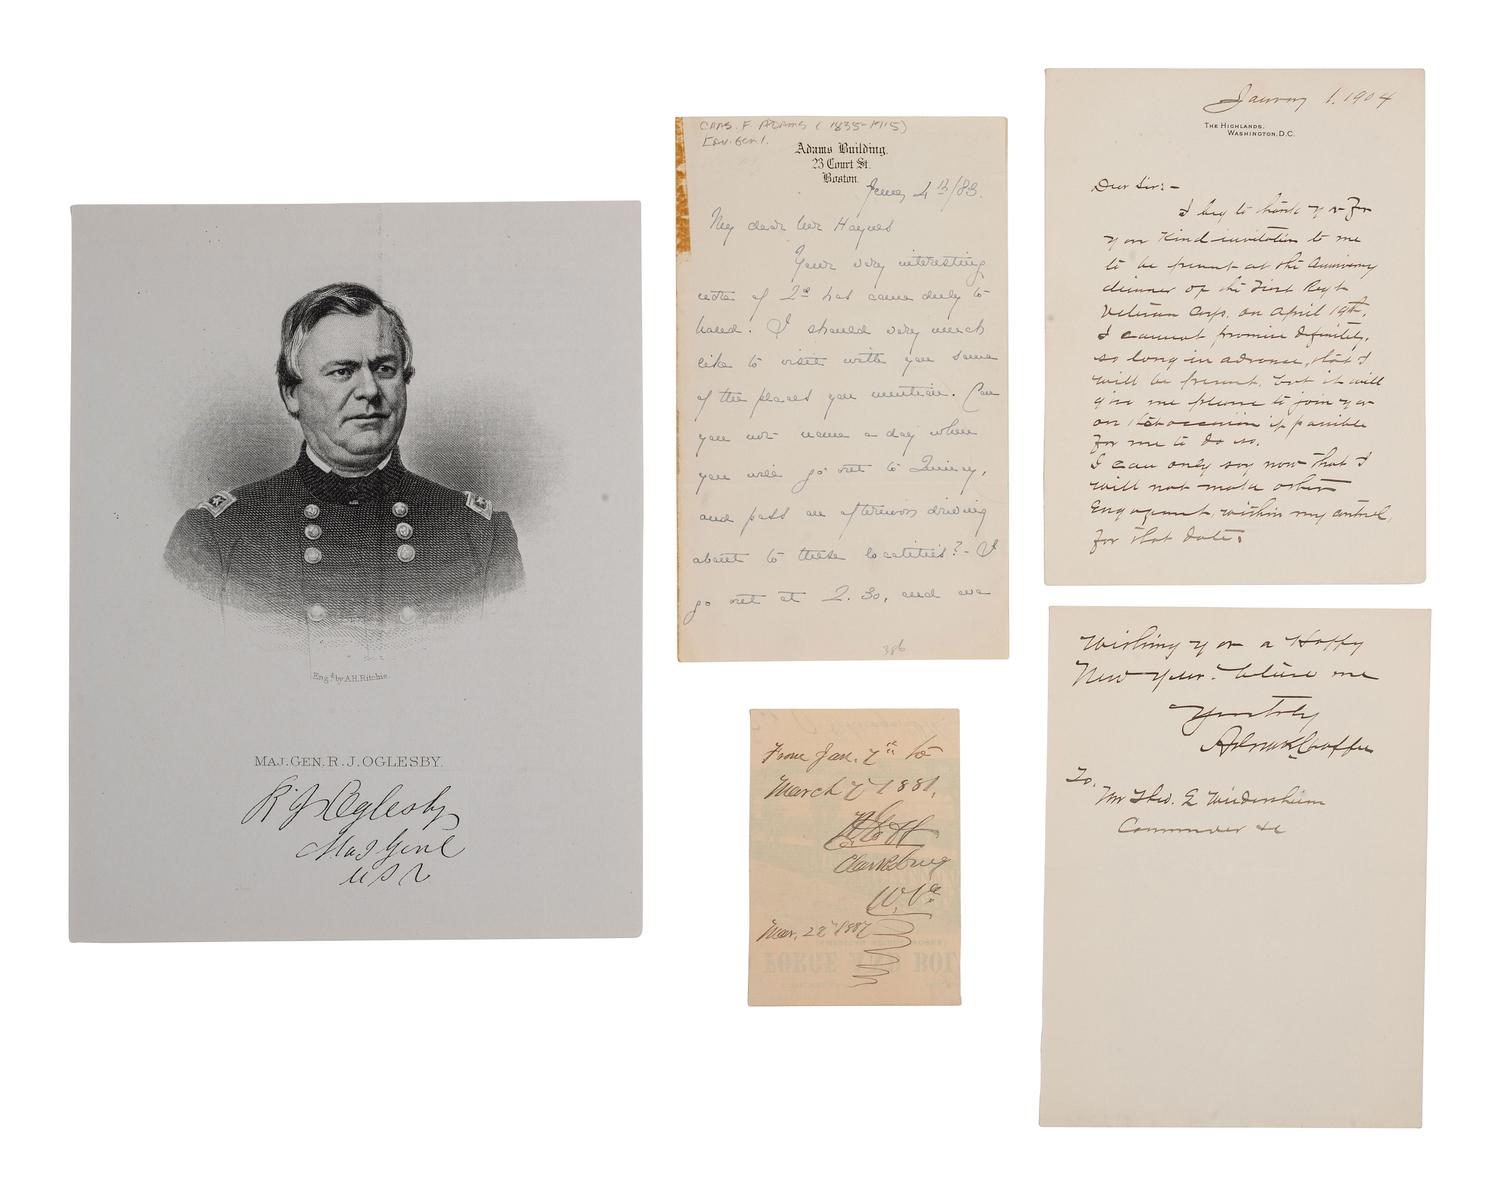 Eng.d by A.H. Ritchie.
MAJ. GEN. R. J. OGLESBY.
R J Oglesby
Maj Genl
U S V
CHAS. F. ADAMS (1835-1915)
Adams Building.
23 Court St.
Boston.
4th/83.
My dear Mr Haynes
Your very interesting
note of 2d has come duly to
hand. I should very much
like to visit with you some
of the places you mention. Can
you not name a day when
you will go out to Quincy,
and pass an afternoon driving
about to these localities? - I
go out at 2.30, and we
386
From Jan. 7th to
March 7th 1881,
Clarksburg
W. Va
Mar. 22d 1887
January 1. 1904
THE HIGHLANDS.
WASHINGTON, D.C.
Dear Sir:-
I beg to thank you for
your kind invitation to me
to be present at the Anniversary
dinner of the First Regt
Veteran Corps, on April 19th.
I cannot promise definitely,
so long in advance, that I
will be present, but it will
give me pleasure to join you
on that occasion if possible
for me to do so.
I can only say now that I
will not make other
Engagement, within my control,
for that date.
Wishing you a Happy
New Year. believe me
Yours truly
Adna R Chaffee
To.
Mr Theo. E. Wiedersheim
Commander &c